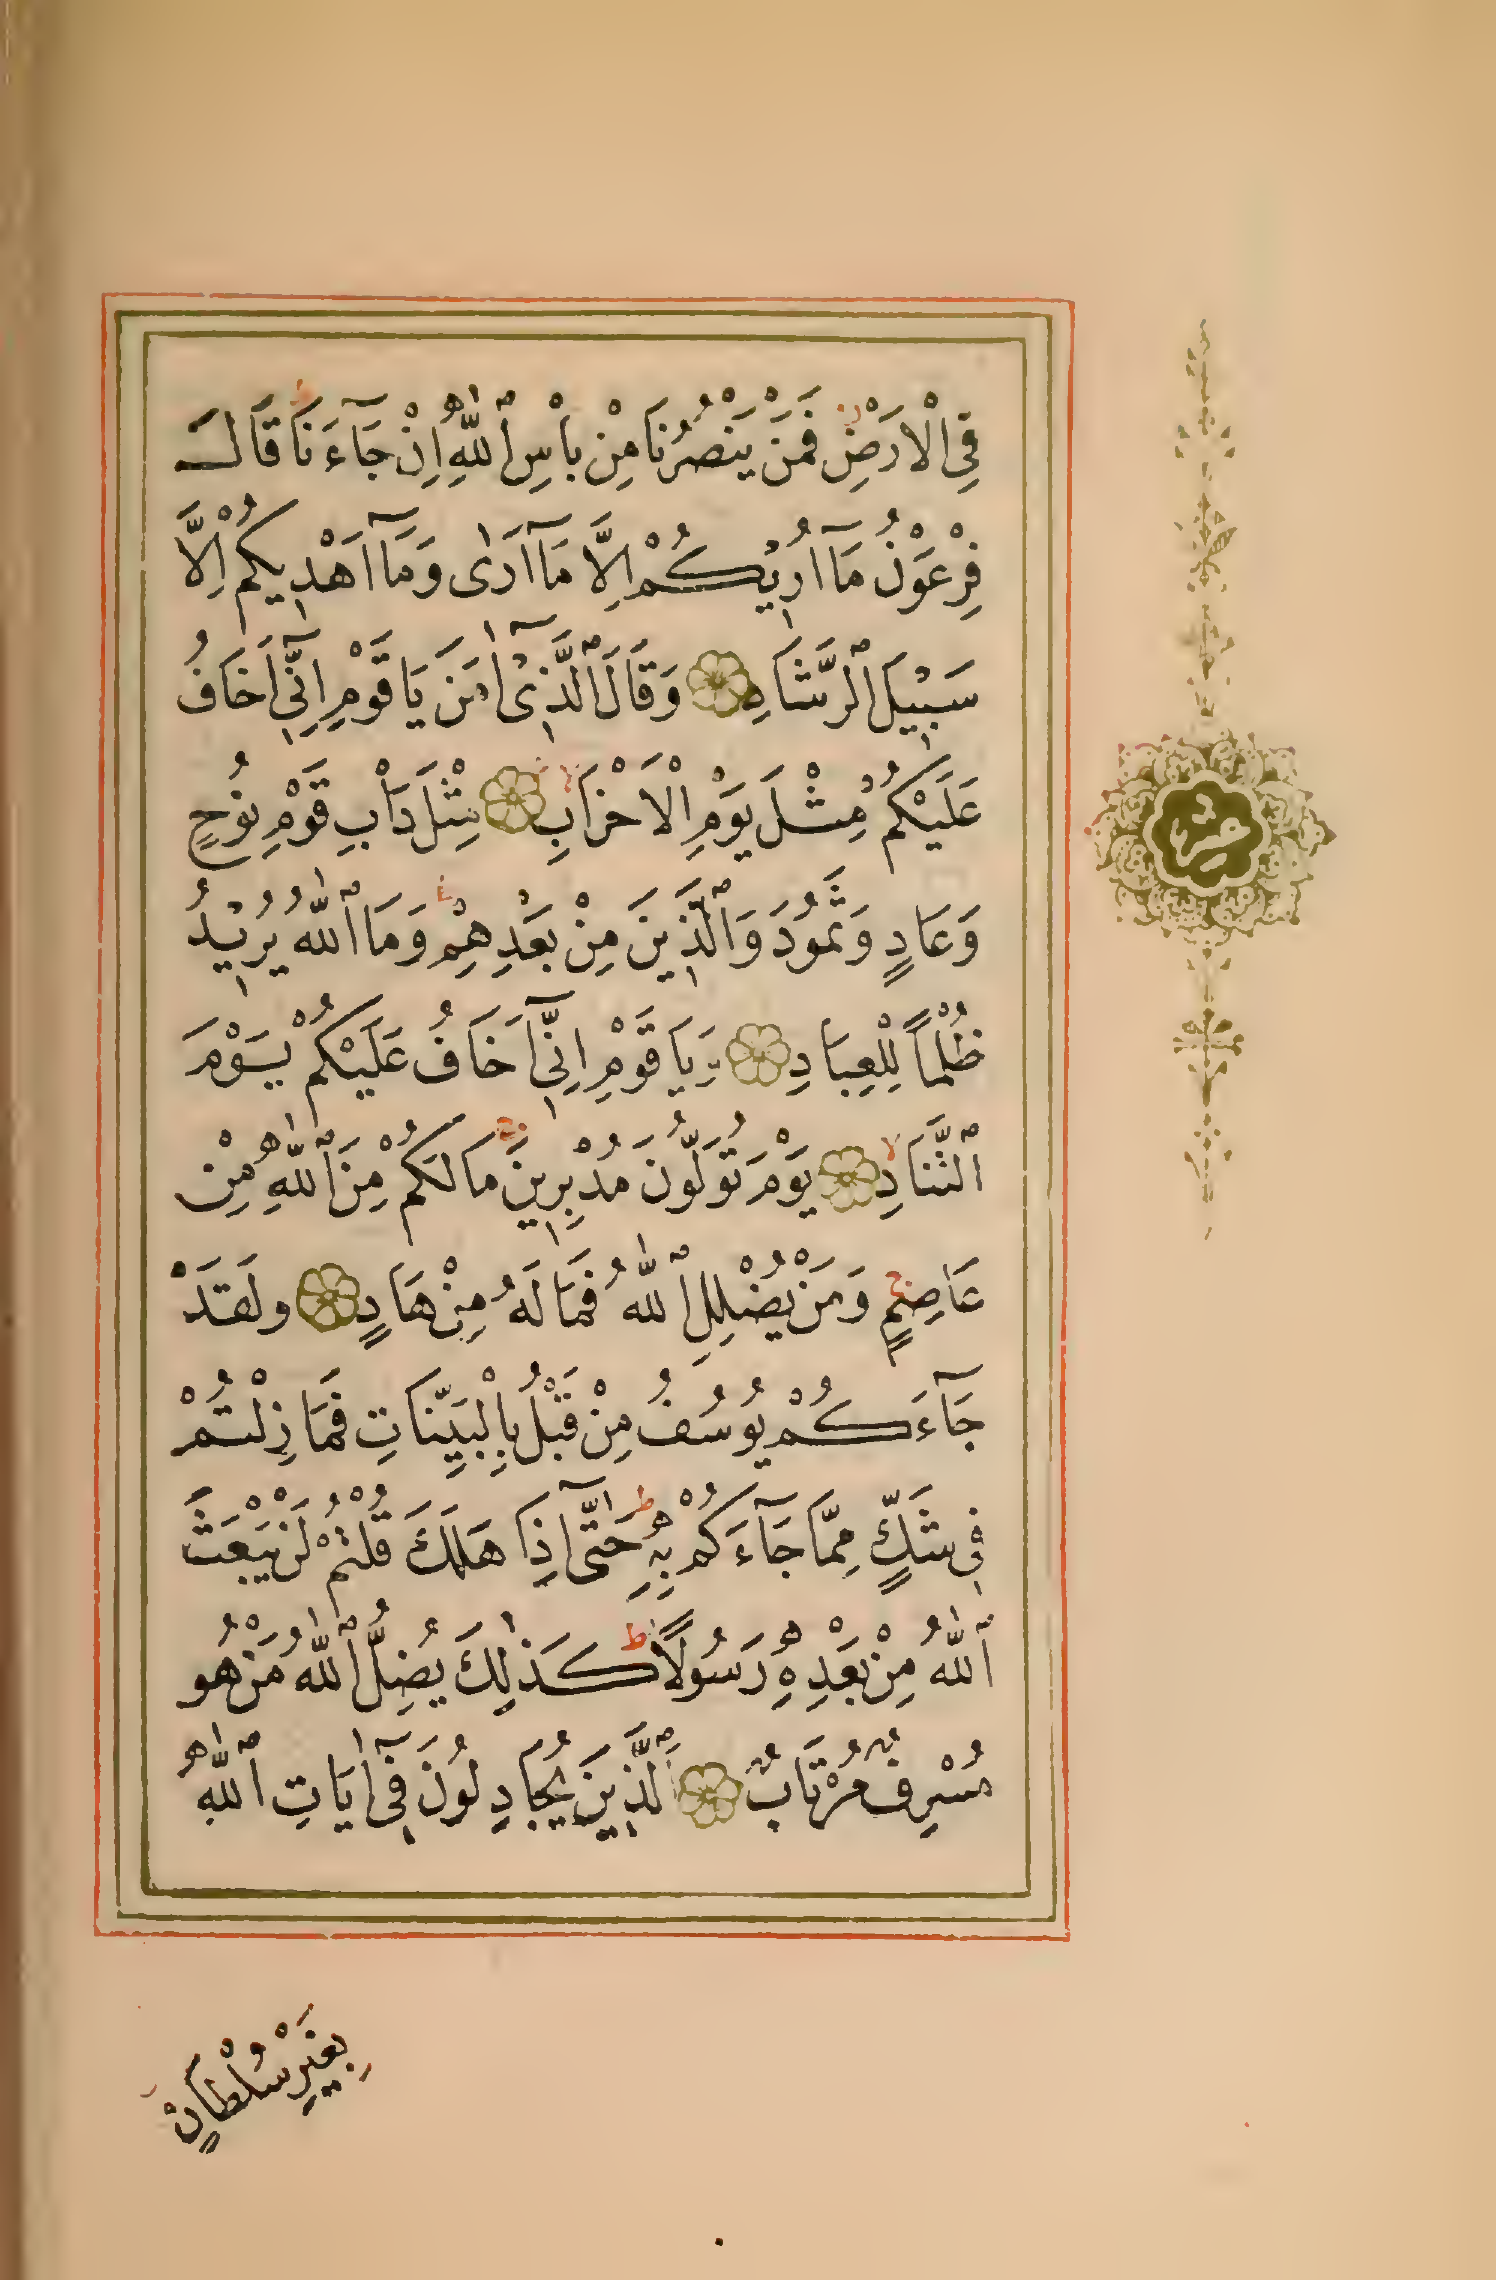 فِى الْاَرْضِ فَمَنْ يَنْصُرُنَا مِنْ بَاْسِ اللّٰهِ اِنْ جَآءَنَا قَالَ
فِرْعَوْنُ مَآ اُرِيْكُمْ اِلَّا مَآ اَرٰى وَمَآ اَهْدِيكُمْ اِلَّا
سَبِيْلَ الرَّشَادِ وَقَالَ الَّذِىْٓ اٰمَنَ يَا قَوْمِ اِنِّىٓ اَخَافُ
عَلَيْكُمْ مِثْلَ يَوْمِ الْاَحْزَابِ مِثْلَ دَاْبِ قَوْمِ نُوْحٍ
وَعَادٍ وَثَمُودَ وَالَّذِينَ مِنْ بَعْدِهِمْ وَمَا اللّٰهُ يُرِيْدُ
ظُلْمًا لِلْعِبَادِ وَيَا قَوْمِ اِنِّىٓ اَخَافُ عَلَيْكُمْ يَوْمَ
التَّنَادِ يَوْمَ تُوَلُّونَ مُدْبِرِينَ مَا لَكُمْ مِنَ اللّٰهِ مِنْ
عَاصِمٍ وَمَنْ يُضْلِلِ اللّٰهُ فَمَا لَهُ مِنْ هَادٍ ولَقَدْ
جَآءَكُمْ يُوسُفُ مِنْ قَبْلُ بِالْبَيِّنَاتِ فَمَا زِلْتُمْ
فِى شَكٍّ مِمَّا جَآءَكُمْ بِهِ حَتّٰىٓ اِذَا هَلَكَ قُلْتُمْ لَنْ يَبْعَثَ
اللّٰهُ مِنْ بَعْدِهِ رَسُولًا كَذٰلِكَ يُضِلُّ اللّٰهُ مَنْ هُو
مُسْرِفٌ مُرْتَابٌ اَلَّذِينَ يُجَادِلُونَ فِىٓ اٰيَاتِ اللّٰهِ
بِغَيْرِ سُلْطَانٍ